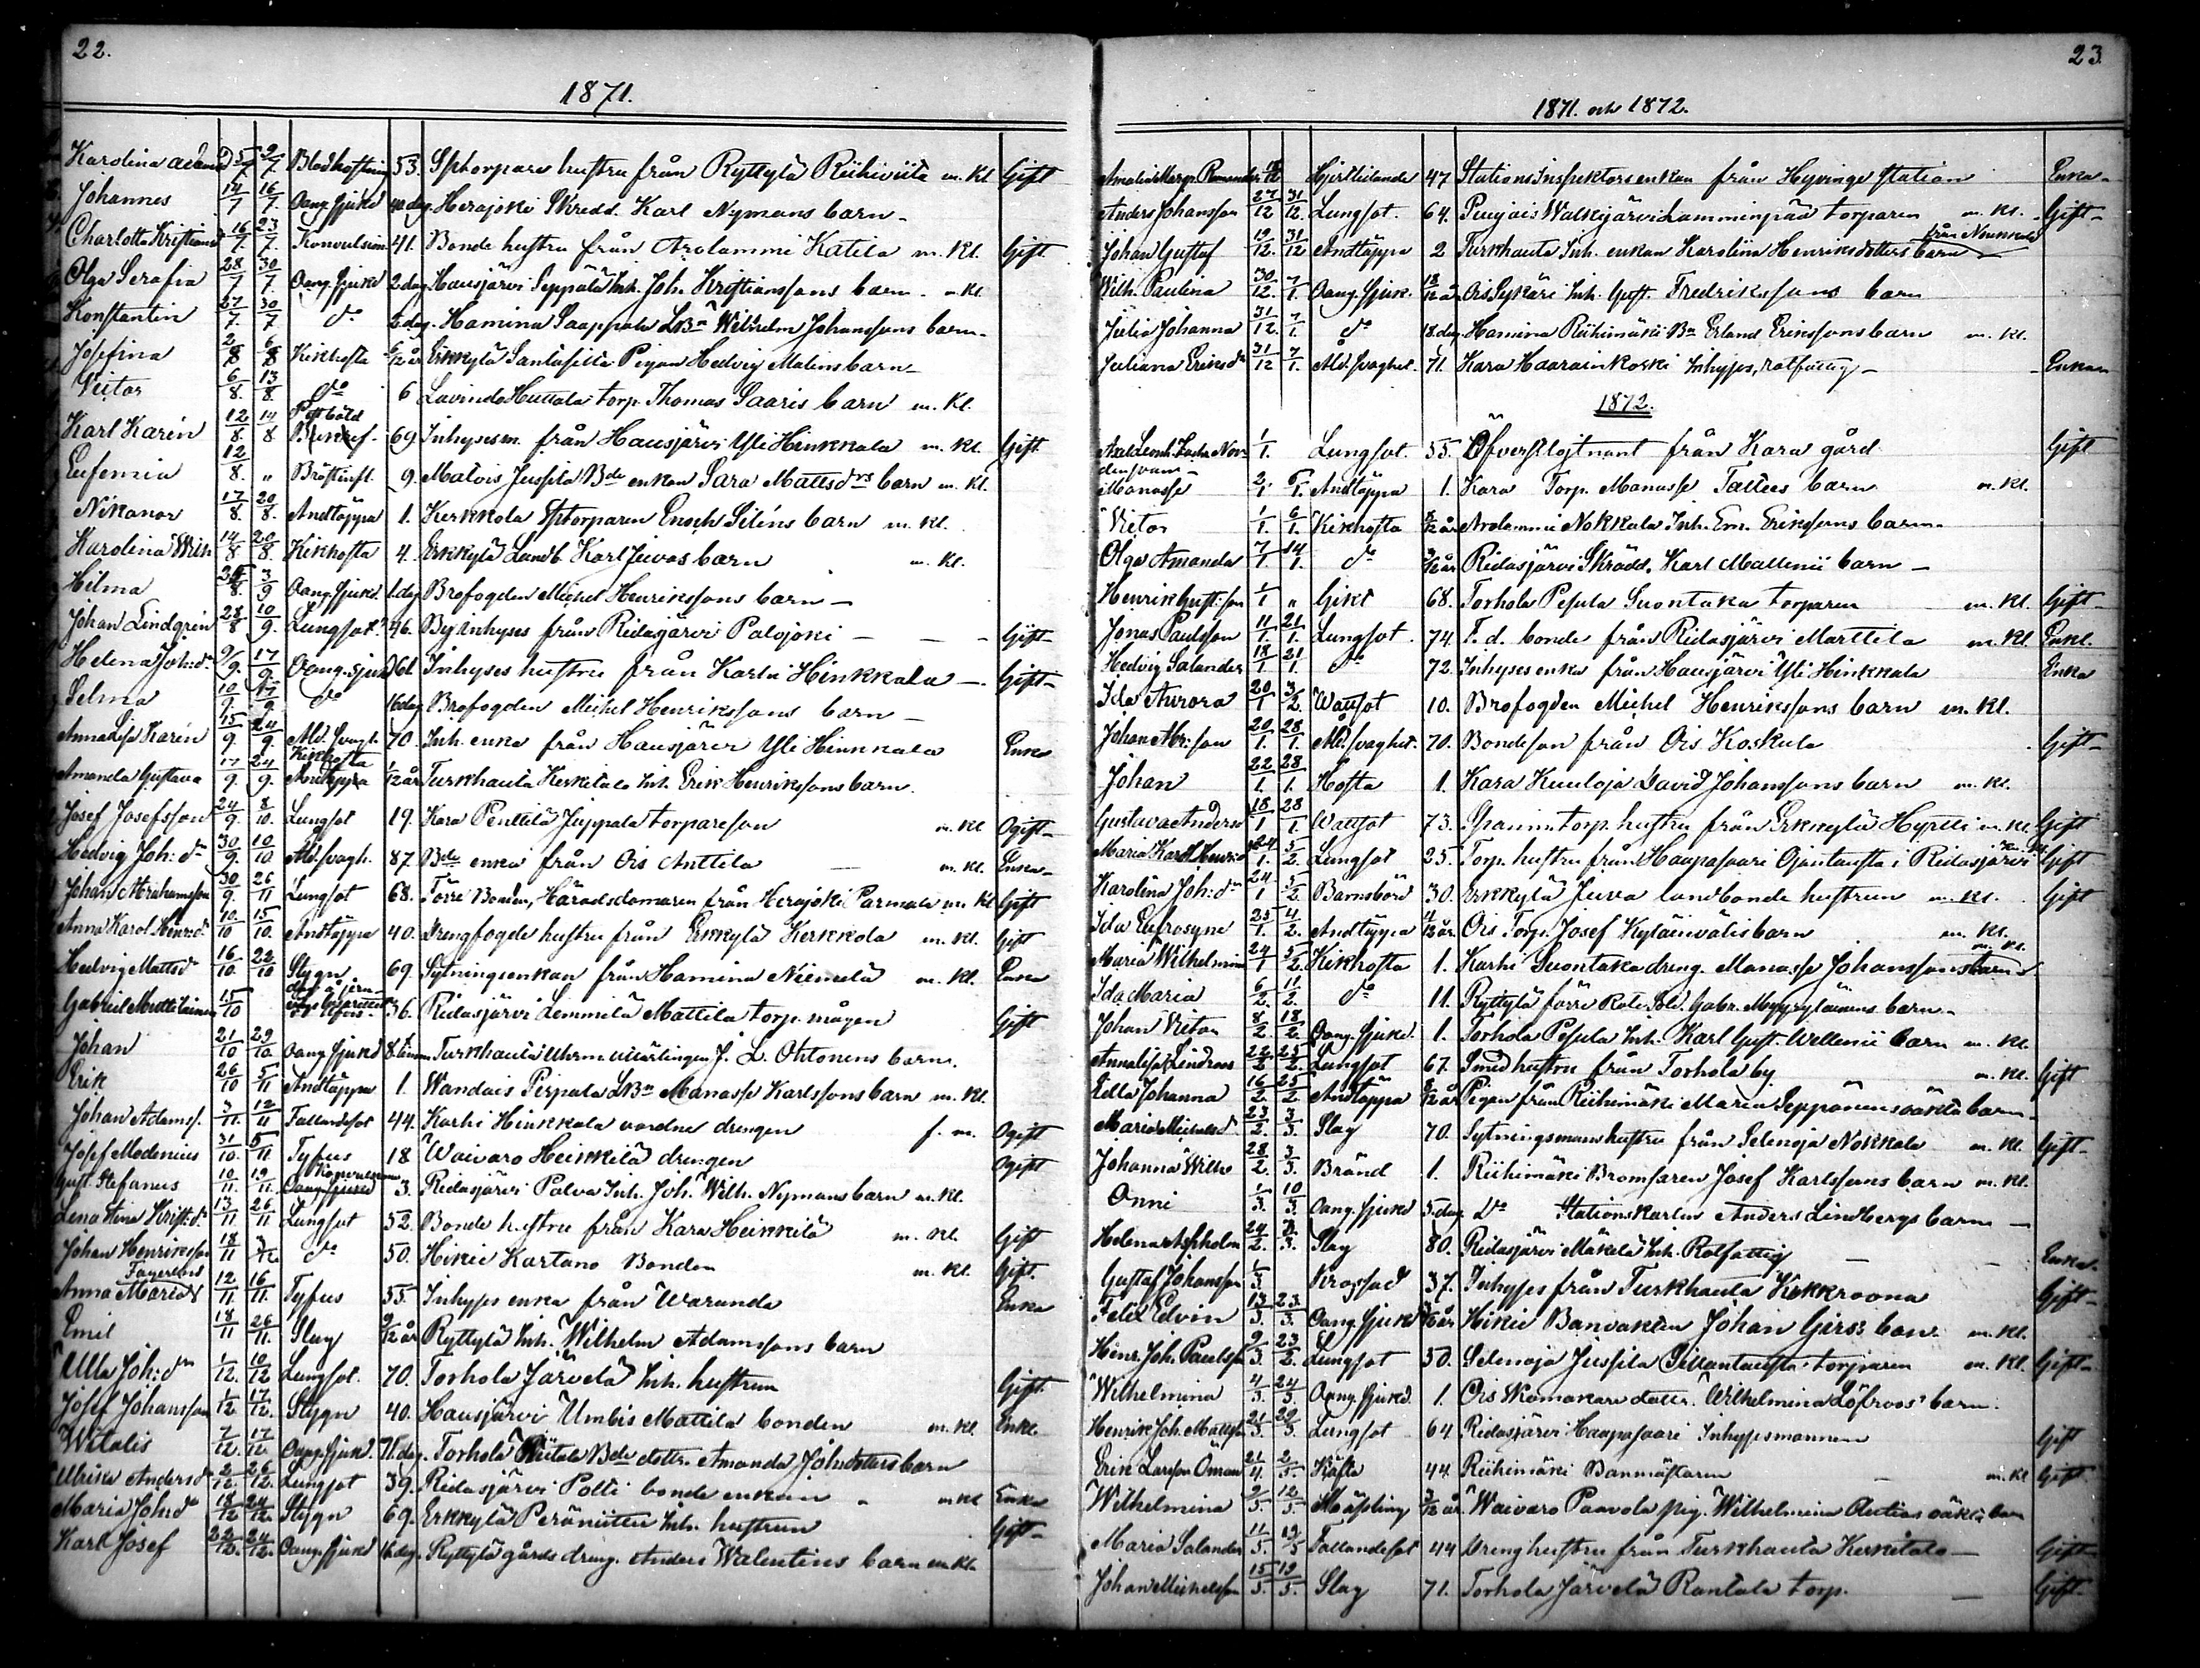 22.
1871.
Karolina 5/7 9/7 53. Sptorpare hustru från Ryttylä Riihiviita m. Kl Gift
Johannes 14/7 16/7 Oang. sjukd dag. Herajoki Skredd. Karl Nymans barn
Charlotta Kristiana 16/7 23/7 Konvulsion 41. Bonde hustru från Arolammi Katila m. Kl. Gift
Olga Serafia 28/7 30/7 Oang. sjukd 2 dag Hausjärvi Seppälä Inh. Joh. Kristianssons barn m Kl.
Konstantin 27/7. 30/7 do dag. Hamina Saappala LBn Wilhelm Johanssons barn
Josefina 2/8 6/8 Kikhosta 6/12 år Erkkylä Santasilta Pigan Hedvig Malins barn
Victor 6/8. 13/8. do 6 Lavinto Huttala torp. Thomas Saaris barn m. Kl.
Karl Karén 12/8. 14/8 69. Inhysesm. från Hausjärvi Yli Hinkkala m. Kl. Gift
Eufemia 12/8. " Bröstinfl. 9. Matois Jussila Bde enkan Sara Mattsdrs barn m. Kl.
Nikanor 17/8. 20/8. Andtäppa 1. Kerkkola Sptorparen Enoch Siléns barn m. Kl.
Karolina Wilh 14/8 20/8 Kikhosta 4. Erkkylä Landb. Karl Juvas barn m. Kl.
Hilma 3/9 Oang. sjukd. 1 dag Brofogden Michel Henrikssons barn
Johan Lindqrén 28/8 10/9. Lungsot. 46. Bdinhyses från Ridasjärvi Palojoki Gift
Helena Joh:dr 9/9. 17/9. Oang. sjukd 61 Inhyses hustru från Karhi Hinkkala Gift
Selma 10/9. 17/9 do 16 dag Brofogden Michel Henrikssons barn
Anna Lisa Karén 15/9. 24/9. Åld. svagh. 70. Inh. enka från Hausjärvi Yli Hinkkala Enka
Amanda Gustava 17/9. 24/9. Kikhosta 1/12 år Turkhauta Kerkitalo Inh. Erik Henrikssons barn.
Josef Josefsson 24/9. 8/10. Lungsot 19. Kara Penttilä Juppala torpareson m. Kl Ogift
Hedvig Joh:dr 30/9. 10/10 Åld. svagh. 87. Bde enka från Ois Anttila m. Kl. Enka
Johan Abrahamsson 30/9. 26/11 Lungsot 68. Förre Bonden, Häradsdomaren från Herajoki Parmala m. Kl Gift
Anna Karol. Henr.dr 10/10 15/10. Andtäppa 40. Drengfogde hustru från Erkkylä Kerkkola m. Kl. Gift
Hedvig Mattsdr 16/10. 22/10 Stygn 69. Sytningsenkan från Hamina Niemelä m. Kl. Enka
Gabriel 15/10 36. Ridasjärvi Lemmilä Mattila torp. mågen Gift
Johan 21/10 29/10. Oang. sjukd Turkhauta J. L. Ohtonens barn.
Erik 26/10 5/11 Andtäppa 1. Wandais Pirpala LBn Manasse Karlssons barn m. Kl.
Johan Adamss. 3/11. 12/11 Fallandesot 44. Karhi Hinkkala vordne drengen f. m. Ogift
Josef Modenius 31/10. 5/11 Tyfus 18 Waivaro Heikkilä drengen Ogift
Gust. Stefanus 10/11. 19/11. Konvulsion 3. Ridasjärvi Palva Inh. Joh. Wilh. Nymans barn m. Kl.
Lena Stina Krist.dr 13/11 26/11 Lungsot 52. Bonde hustru från Kara Heikkilä m. Kl. Gift
Johan Henriksson 18/11 do 50. Hikie Kartano Bonden m. Kl. Gift.
Anna Maria 12/11 16/11. Tyfus 55. Inhyses enka från Waranda Enka
Emil 18/11 26/11. Slag 9/12 år Ryttylä Inh. Wilhelm Adamssons barn
Ulla Joh:dr 1/12. 10/12 Lungsot. 70. Torhola Järvelä Inh. hustrun Gift.
Josef Johansson 1/12 17/12. Stygn 40. Hausjärvi Umbis Mattila bonden m. Kl. Enkl.
Witalis 7/12. 17/12. Oang. sjukd. dag. Torhola Bde dottr. Amanda Johansdotters barn
Ulrika Andersdr 2/12. 26/12. Lungsot 39. Ridasjärvi Potti bonde enkan m Kl Enka
Maria Joh:dr 18/12 24/12. Stygn 69. Erkkylä Peräniitu Inh. hustrun Gift
Karl Josef 22/12. 24/12. Oang. sjukd dag. Ryttylä gårds dreng. Anders Walentins barn m Kl.
23.
1871. och 1872.
Amalia Marg. Hjertlidande 47 Stations Inspektorsenkan från Hyvinge Station Enka
Anders Johansson 27/12 31/12. Lungsot. 64. Puujais Walkjärvi Lamminpää torparen m. Kl. Gift
från Nunkala
Johan Gustaf 19/12. 31/12 Andtäppa 2 Turkhauta Inh. enkan Karolina Henriksdotters barn
Wilh. Paulina 30/12. 7/1. Oang. sjuk. år Ois Sykäri Inh. Gust. Fredrikssons barn
Julia Johanna 31/12. 7/1. do 18 dag. Hamina Riihimäki Bn Erland Erikssons barn m. Kl.
Juliana Eriksdr 31/12 7/1. Åld. svaghet. 71. Kara Haarainkoski Inhyses, rotfattig Enka
1872.
Axel Leonh. 1/1. Lungsot. 55. Öfverstlöjtnant från Kara gård Gift
Manasse 2/1 6/1. Andtäppa 1. Kara Torp. Manasse Tallens barn m. Kl.
Victor 1/1 6/1. Kikhosta år Arolammi Nokkala Inh. Em. Erikssons barn
Olga Amanda 7/1 14/1. do år Ridasjärvi Skrädd. Karl Mallenii barn
Henrik Gust.son 1/1 " Gikt 68. Torhola Pesula Suontaka torparen m. Kl. Gift
Jonas Paulsson 11/1. 21/1. Lungsot. 74. F. d. bonde från Ridasjärvi Marttila m. Kl Enkl.
Hedvig Salander 18/1 21/1. do 72. Inhyses enka från Hausjärvi Yli Hinkkala Enka
Ida Aurora 20/1 3/2. Wattsot 10. Brofogden Michel Henrikssons barn m. Kl.
Johan Abr:son 20/1. 28/1. Åld. svaghet. 70. Bondeson från Ois Koskula Gift
Johan 22/1. 28/1. Hosta 1. Kara Kuuloja David Johanssons barn m. Kl.
Gustava Anders 18/1 28/1. Wattsot 73. Spannm torp. hustru från Erkkylä Hyrtti m. Kl. Gift
Maria Karol. Henr. 24/1. 5/2. Lungsot 25. Torp. hustru från Haapasaari Ojantausta i Ridasjärvi Gift
Karolina Joh:dr 24/1 5/2. Barnsbörd 30. Erkkylä Juva landbonde hustrun m. Kl. Gift
Ida Eufrosyne 25/1. 4/2. Andtäppa 4/12 år. Ois Torp. Josef Kyläinvälis barn m. Kl.
Maria Wilhelmina 24/1 5/2. Kikhosta 1. Karhi Suontaka dreng. Manasse Johanssons barn m. Kl.
Ida Maria 6/2. 11/2. do 11. Ryttylä förre Rote Sold. Gabr. Myyryläinens barn
Johan Victor 8/2. 18/2. Oang. sjukd. 1. Torhola Pesula Inh. Karl Gust. Wellenii barn m. Kl.
Annalisa Lindroos 22/2 25/2. Lungsot 67. Smed hustru från Torhola by. m. Kl. Gift
Edla Johanna 16/2. 25/2 Andtäppa år Pigan från Riihimäki Maria Seppänens oäkta barn
Maria Michelsdr 23/2. 3/3. Slag 70. Sytningsmans hustru från Selenoja Nokkala m. Kl. Gift
Johanna Wilh. 28/2. 3/3. Bränd 1. Riihimäki Bromsaren Josef Karlssons barn m. Kl.
Onni 1/3. 10/3. Oang. sjukd 5. dag. do Stationskarlen Anders Lindbergs barn
Helena 24/2. Slag 80. Ridasjärvi Mäkelä Inh. Rotfattig Enka
Gustaf Johansson 1/3. 37. Inhyses från Turkhauta Kokkroona Gift
Felix Edvin 13/3. 23/3. Oang. sjukd år Hikie Banvakten Johan Girss barn m. Kl.
Henr. Joh. Paulss. 9/3. 23/2. Lungsot 50. Selenoja Jussila Sillantausta torparen m. Kl. Gift
Wilhelmina 4/3. 24/3. Oang. sjukd. 1. Ois Skomakare dottr. Wilhelmina Löfroos' barn.
Henrik Joh. Mattss. 21/3. 29/3. Lungsot 64 Ridasjärvi Haapasaari Inhysesmannen Gift
Erik Larsson Öman 21/4. 2/5. Kräfta 44 Riihimäki Banmästaren m. Kl Gift
Wilhelmina 9/5. 12/5. Mässling 3/12 år. Waivaro Paavola pig. Wilhelmina oäkta barn
Maria Salander 11/5. 19/5 Fallandesot 44 Dreng hustru från Turkhauta Kerkitalo Gift
Johan Michelsson 15/5. 19/5. Slag 71. Torhola Järvelä Rantala torp. Gift.